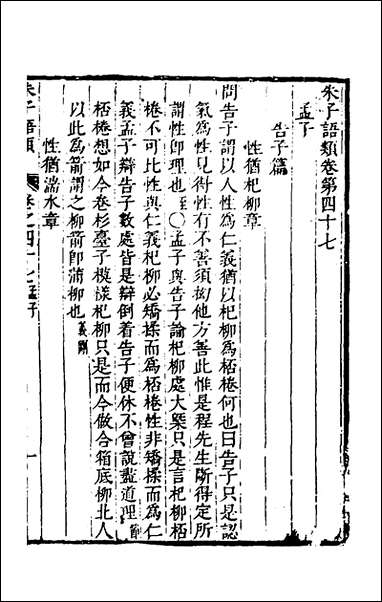 朱子語類卷第四十七
孟子
告子篇
性猶杞柳章
問告子謂以人性爲仁義猶以杞柳爲桮棬何也曰告子只是認
氣爲性見得性有不善須拗他方善此惟是程先生斷得定所
謂性即理也 至 ○孟子與告子論杞柳處大槩只是言杞柳桮
棬不可比性與仁義杞柳必矯揉而爲桮棬性非矯揉而爲仁
義孟子辯告子數處皆是辯倒着告子便休不曾說盡道理 節
桮棬想如今卷杉臺子模樣杞柳只是而今做合箱底柳北人
以此爲箭謂之柳箭即蒲柳也 義剛
性猶湍水章
朱子語類 卷之四十七 孟子 一